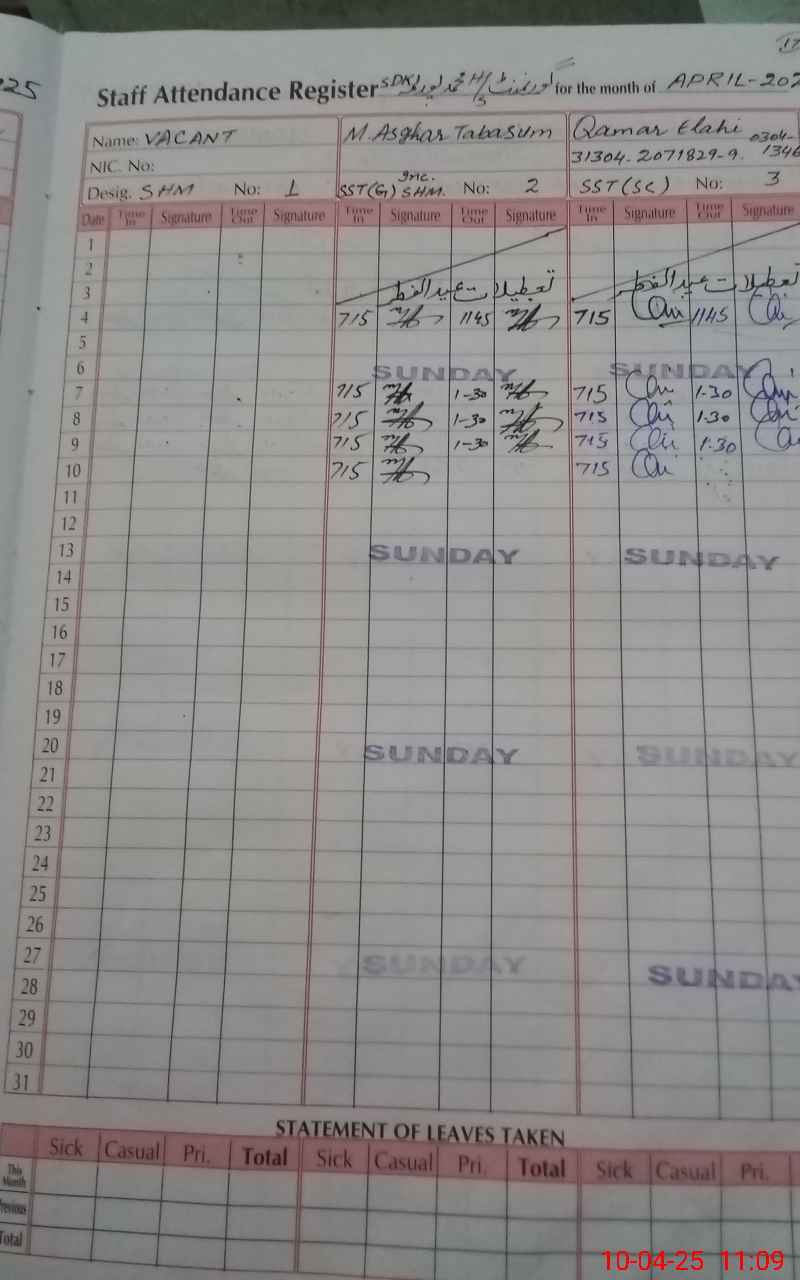 25
17
Staff Attendance Register SDK for the month of APRIL-202
Name: VACANT M. Asghar Tabasum Qamar Elahi 0304-
NIC. No: 31304-2071829-9. 1346
Inc.
Desig. SHM No: 1 SST(G) SHM. No: 2 SST(SC) No: 3
Date Time In Signature Time Out Signature Time In Signature Time Out Signature Time In Signature Time Out Signature
1
2
3 تعطیلات عیدالفطر تعطیلات عیدالفطر
4 715 1145 715 1145
5
6 SUNDAY SUNDAY
7 715 1-30 715 1.30
8 715 1-30 715 1.30
9 715 1-30 715 1.30
10 715 715
11
12
13 SUNDAY SUNDAY
14
15
16
17
18
19
20 SUNDAY SUNDAY
21
22
23
24
25
26
27 SUNDAY SUNDAY
28
29
30
31
STATEMENT OF LEAVES TAKEN
Sick Casual Pri. Total Sick Casual Pri. Total Sick Casual Pri.
This Month
Previous
Total
10-04-25 11:09